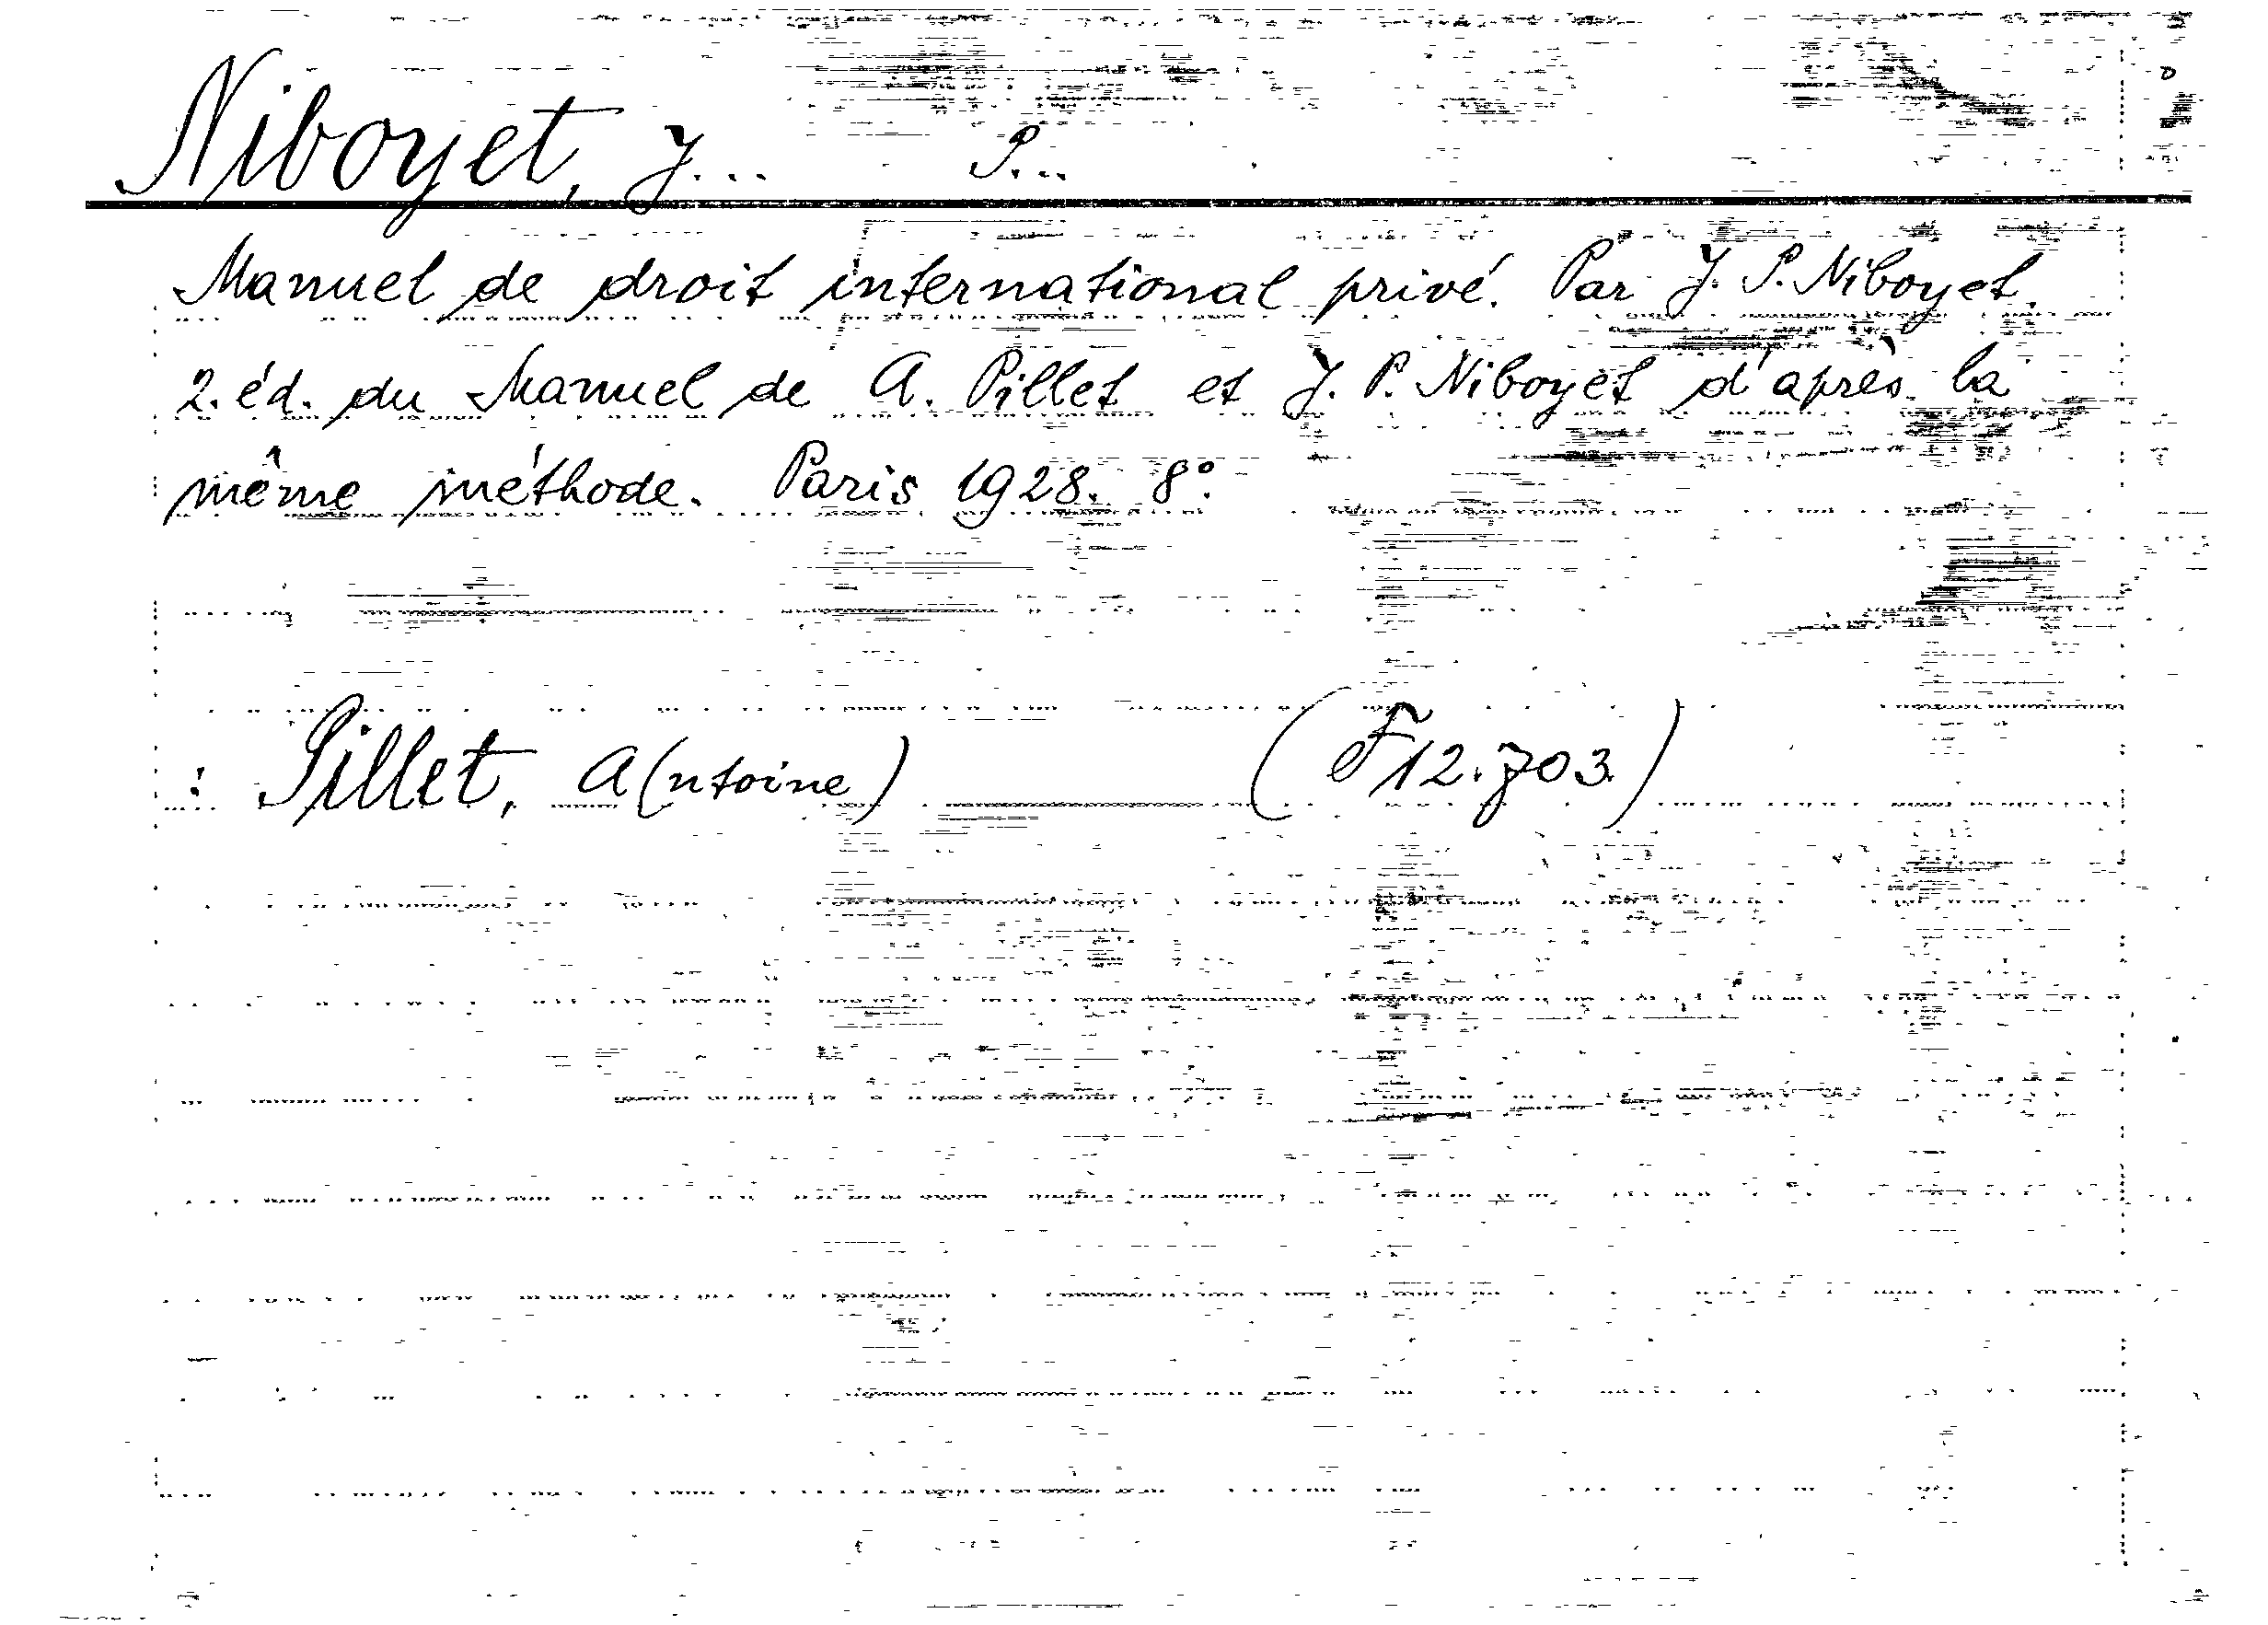 Niboyet, J... P...
Manuel de droit international privé. Par J. P. Niboyet.
2. éd. du Manuel de A. Pillet et J. P. Niboyet d'après la
même méthode. Paris 1928. 8°.
: Pillet, A(ntoine) (F12.703.)